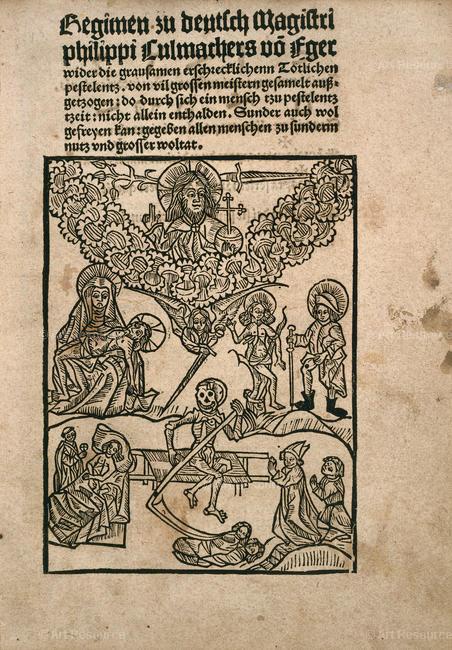 Regimen zu deutsch Magistri
philippi Culmachers vō Eger
wider die grausamen erschrecklichenn Tötlichen
pestelentz. von vil grossen meistern gesamelt auß-
getzogen: do durch sich ein mensch tzu pestelentz
tzeit: nicht allein enthalden. Sunder auch wol
gefreyen kan: gegeben allen menschen zu sunderm
nutz vnd grosser woltat.
© Art Resource
© Art Resource